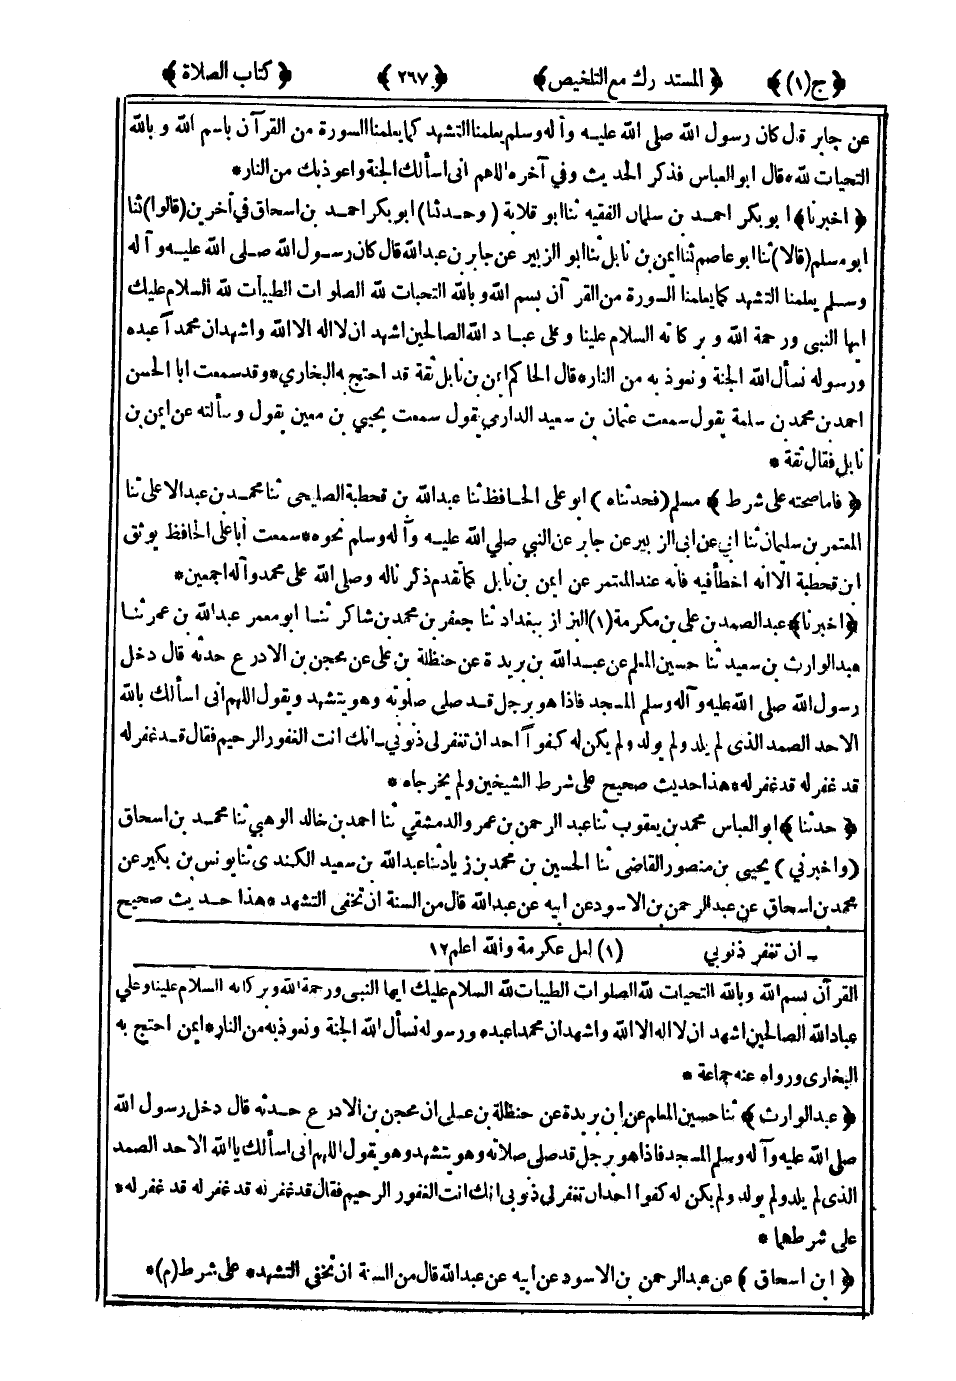 ﴿ج(١)﴾ ﴿المستدرك مع التلخيص﴾ ﴿٢٦٧﴾ ﴿كتاب الصلاة﴾
عن جابر قال كان رسول الله صلى الله عليه وآله وسلم يعلمنا التشهد كما يعلمنا السورة من القرآن باسم الله وبالله
التحيات لله * قال ابو العباس فذكر الحديث وفي آخره اللهم انى اسألك الجنة واعوذ بك من النار *
﴿اخبرنا﴾ ابو بكر احمد بن سلمان الفقيه ثنا ابو قلابة (وحدثنا) ابو بكر احمد بن اسحاق في آخرين (قالوا) ثنا
ابو مسلم (قالا) ثنا ابو عاصم ثنا ايمن بن نابل ثنا ابو الزبير عن جابر بن عبدالله قال كان رسول الله صلى الله عليه وآله
وسلم يعلمنا التشهد كما يعلمنا السورة من القرآن بسم الله وبالله التحيات لله الصلوات الطيبات لله السلام عليك
ايها النبى ورحمة الله وبركاته السلام علينا وعلى عباد الله الصالحين اشهد ان لا اله الا الله واشهد ان محمدا عبده
ورسوله نسأل الله الجنة ونعوذ به من النار * قال الحاكم ايمن بن نابل ثقة قد احتج به البخارى * وقد سمعت ابا الحسن
احمد بن محمد بن سلمة يقول سمعت عثمان بن سعيد الدارمى يقول سمعت يحيى بن معين يقول وسألته عن ايمن بن
نابل فقال ثقة *
﴿فاما صحته على شرط﴾ مسلم (فحدثناه) ابو على الحافظ ثنا عبدالله بن قحطبة الصليحى ثنا محمد بن عبد الاعلى ثنا
المعتمر بن سليمان ثنا ابي عن ابى الزبير عن جابر عن النبي صلى الله عليه وآله وسلم نحوه * سمعت أبا على الحافظ يوثق
ابن قحطبة الا انه اخطأ فيه فانه عند المعتمر عن ايمن بن نابل كما تقدم ذكرنا له وصلى الله على محمد وآله اجمعين *
﴿اخبرنا﴾ عبد الصمد بن على بن مكرمة (١) البزاز ببغداد ثنا جعفر بن محمد بن شاكر ثنا ابو معمر عبدالله بن عمر ثنا
عبد الوارث بن سعيد ثنا حسين المعلم عن عبدالله بن بريدة عن حنظلة بن على عن محجن بن الادرع حدثه قال دخل
رسول الله صلى الله عليه وآله وسلم المسجد فاذا هو برجل قد صلى صلوته وهو يتشهد ويقول اللهم انى اسألك بالله
الاحد الصمد الذى لم يلد ولم يولد ولم يكن له كفواً احد ان تغفر لى ذنوبي ـ انك انت الغفور الرحيم فقال قد غفر له
قد غفر له قد غفر له * هذا حديث صحيح على شرط الشيخين ولم يخرجاه *
﴿حدثنا﴾ ابو العباس محمد بن يعقوب ثنا عبد الرحمن بن عمرو الدمشقي ثنا احمد بن خالد الوهبي ثنا محمد بن اسحاق
(واخبرني) يحيى بن منصور القاضى ثنا الحسين بن محمد بن زياد ثنا عبدالله بن سعيد الكندى ثنا يونس بن بكير عن
محمد بن اسحاق عن عبد الرحمن بن الاسود عن ابيه عن عبدالله قال من السنة ان تخفى التشهد * هذا حديث صحيح
ـ ان تغفر ذنوبي (١) لعل عكرمة والله اعلم ١٢
القرآن بسم الله وبالله التحيات لله الصلوات الطيبات لله السلام عليك ايها النبى ورحمة الله وبركاته السلام علينا وعلى
عباد الله الصالحين اشهد ان لا اله الا الله واشهد ان محمدا عبده ورسوله نسأل الله الجنة ونعوذ به من النار * ايمن احتج به
البخارى ورواه عنه جماعة *
﴿عبد الوارث﴾ ثنا حسين المعلم عن ابن بريدة عن حنظلة بن على ان محجن بن الادرع حدثه قال دخل رسول الله
صلى الله عليه وآله وسلم المسجد فاذا هو برجل قد صلى صلاته وهو يتشهد وهو يقول اللهم انى اسألك يا الله الاحد الصمد
الذى لم يلد ولم يولد ولم يكن له كفوا احد ان تغفر لى ذنوبى انك انت الغفور الرحيم فقال قد غفر له قد غفر له قد غفر له *
على شرطهما *
﴿ابن اسحاق﴾ عن عبد الرحمن بن الاسود عن ابيه عن عبدالله قال من السنة ان تخفى التشهد * على شرط (م) *